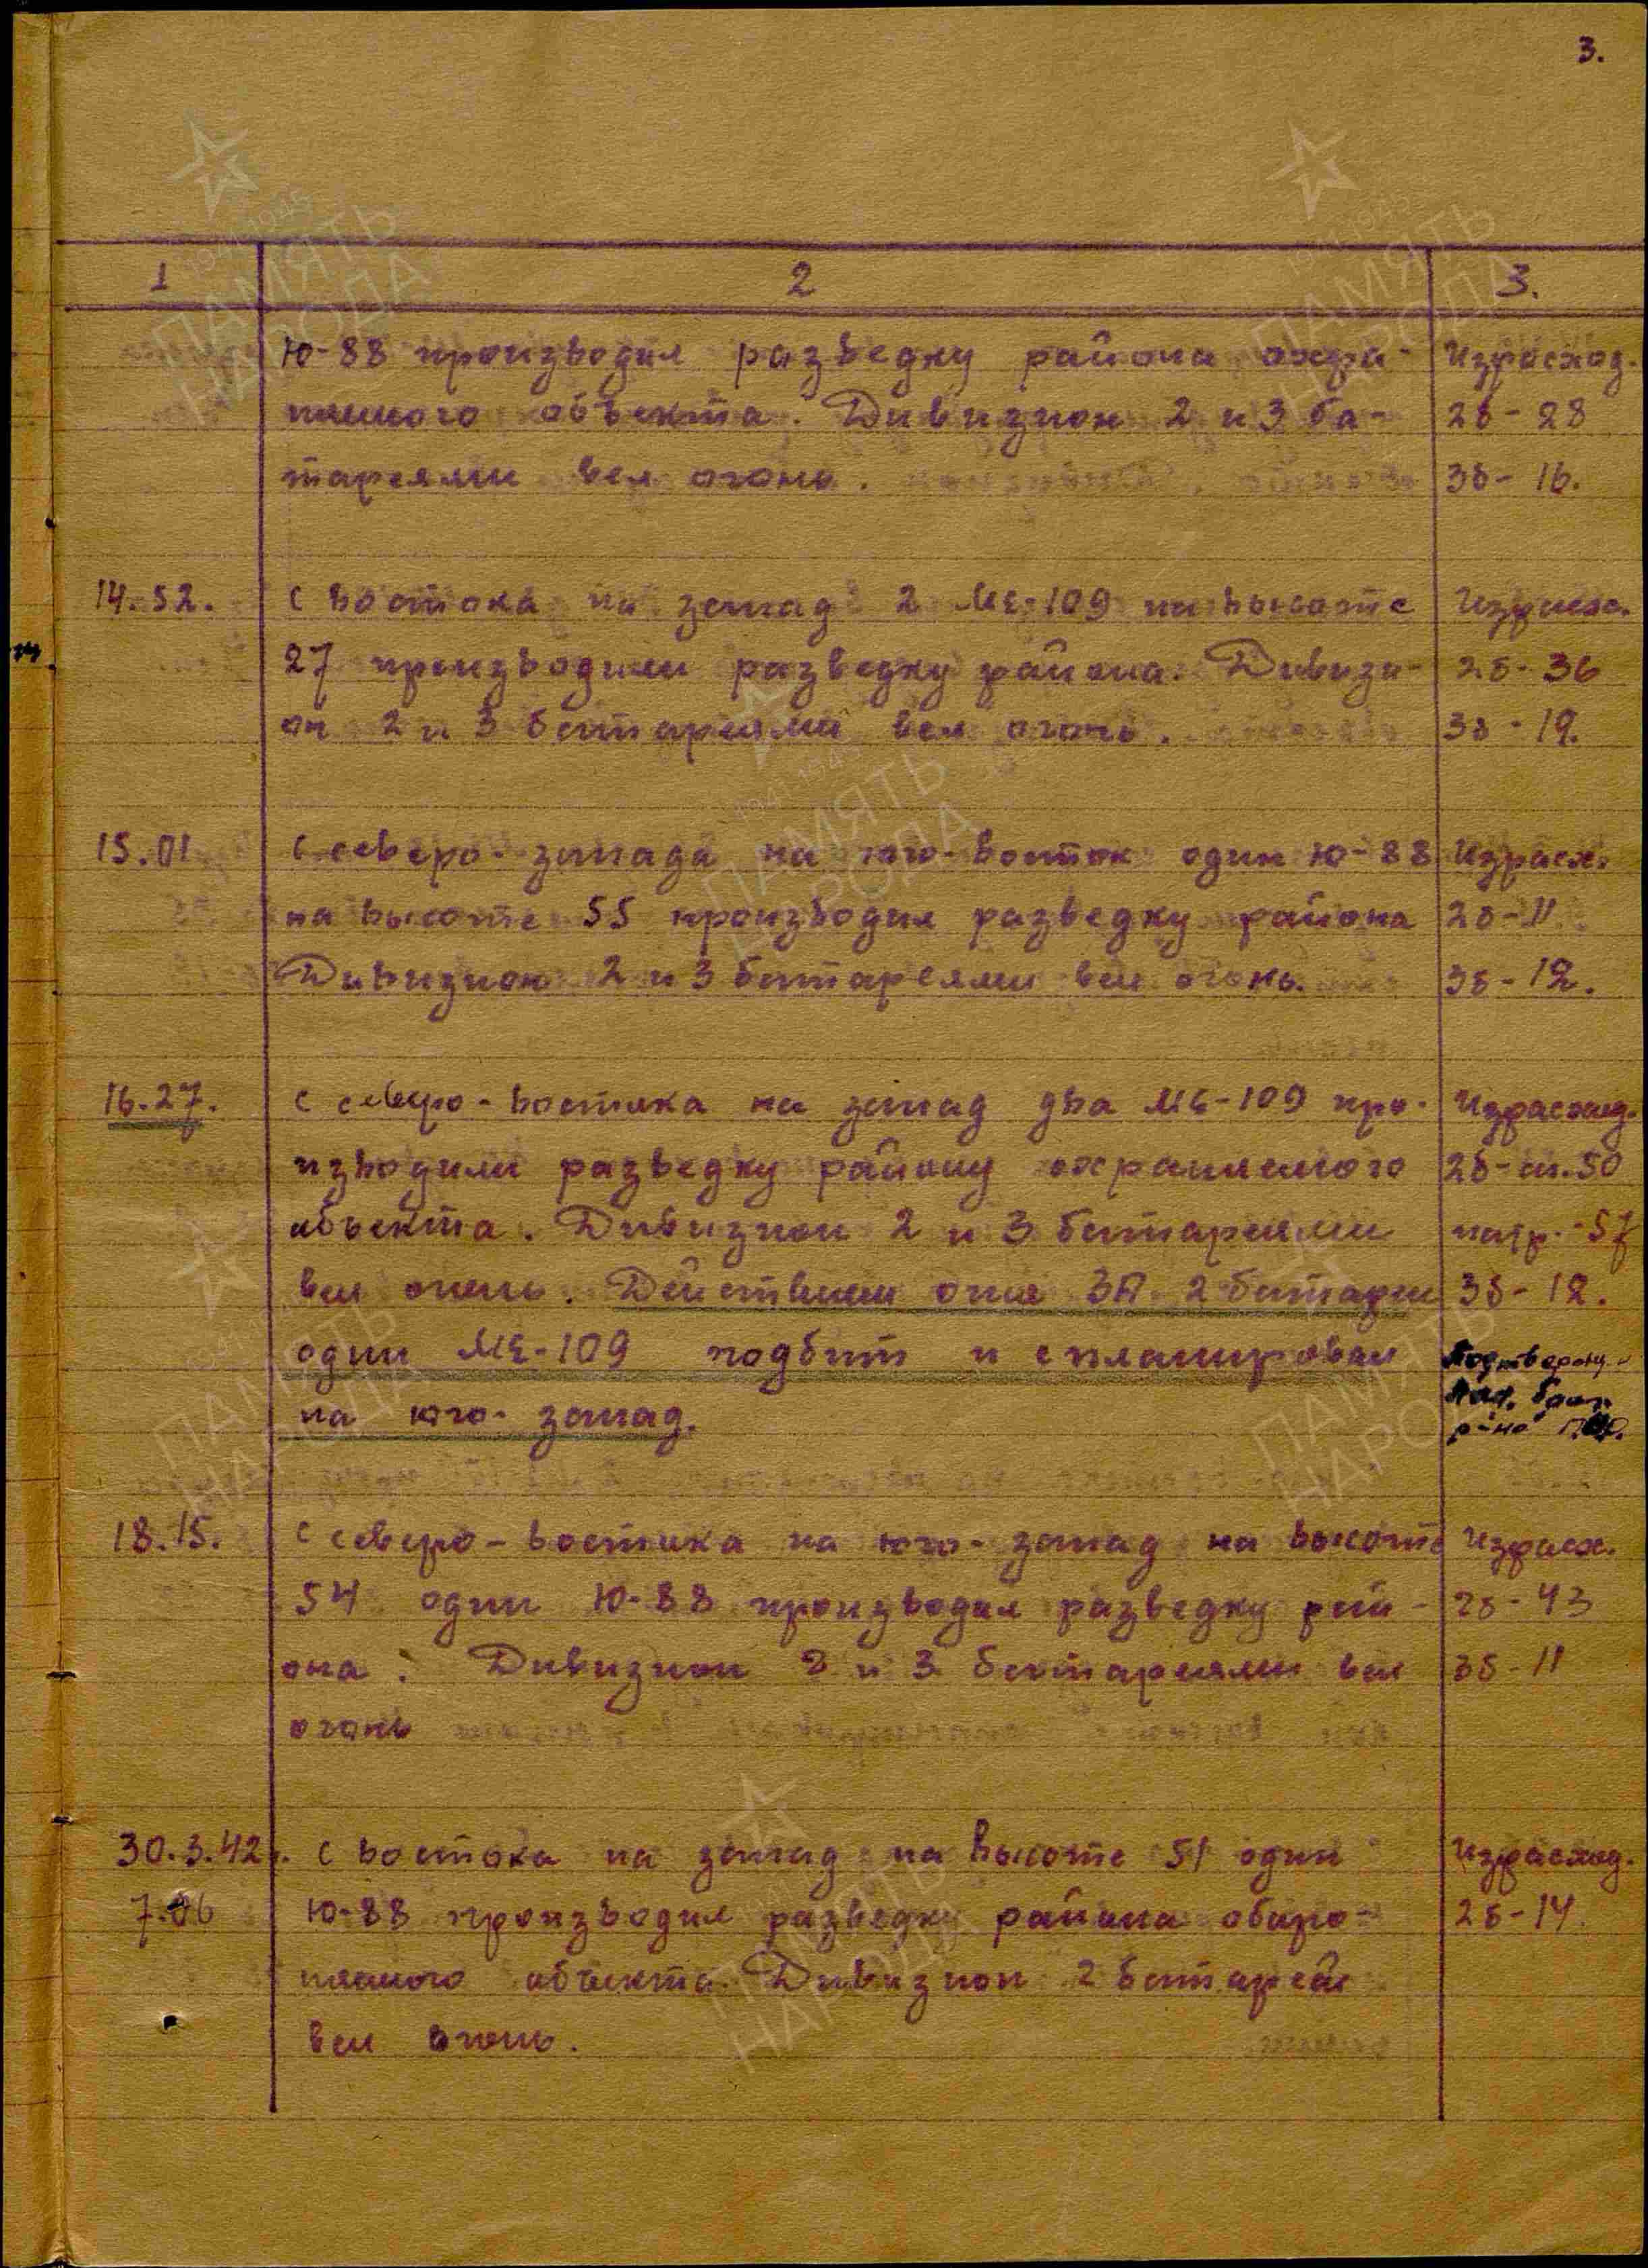 3.
1 2 3.
Ю-88 производил разведку района охра- Израсход.
няемого объекта. Дивизион 2 и 3 ба- 2б-28
тареями вел огонь. 3б-16.
14.52. С востока на запад 2 МЕ-109 на высоте Израсх.
27 производили разведку района. Дивизи- 2б-36
он 2 и 3 батареями вел огонь. 3б-19.
15.01 С северо-запада на юго-восток один Ю-88 Израсх.
на высоте 55 производил разведку района 2б-11
Дивизион 2 и 3 батареями вел огонь. 3б-12.
16.27. С северо-востока на запад два МЕ-109 про- Израсход.
изводили разведку району охраняемого 2б-сн.50
объекта. Дивизион 2 и 3 батареями патр.-57
вел огонь. Действием огня ЗА 2 батареи 3б-12.
один МЕ-109 подбит и спланировал Подтвержд.
на юго-запад. р-на
18.15. С северо-востока на юго-запад на высоте Израсх.
54 один Ю-88 производил разведку рай- 2б-43
она. Дивизион 2 и 3 батареями вел 3б-11
огонь
30.3.42г. С востока на запад на высоте 51 один Израсход.
7.06 Ю-88 производил разведку района оборо- 2б-14
няемого объекта. Дивизион 2 батареей
вел огонь.
1941-1945
ПАМЯТЬ
НАРОДА